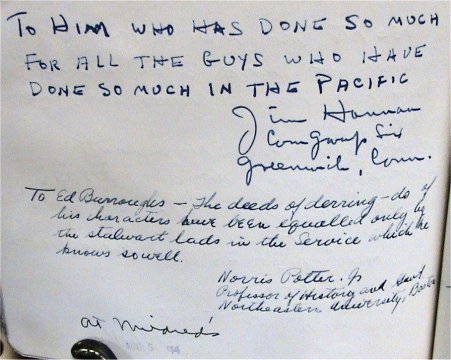 To Him who has done so much
for all the guys who have
done so much in the Pacific
Jim Hannan
ComGroup Six
Greenwich, Conn.
To Ed Burroughs – The deeds of derring-do of
his characters have been equalled only by
the stalwart lads in the Service which he
knows so well.
Norris Potter, Jr
Professor of History and Govt
Northeastern University, Boston
at Mildred's
AUG 5